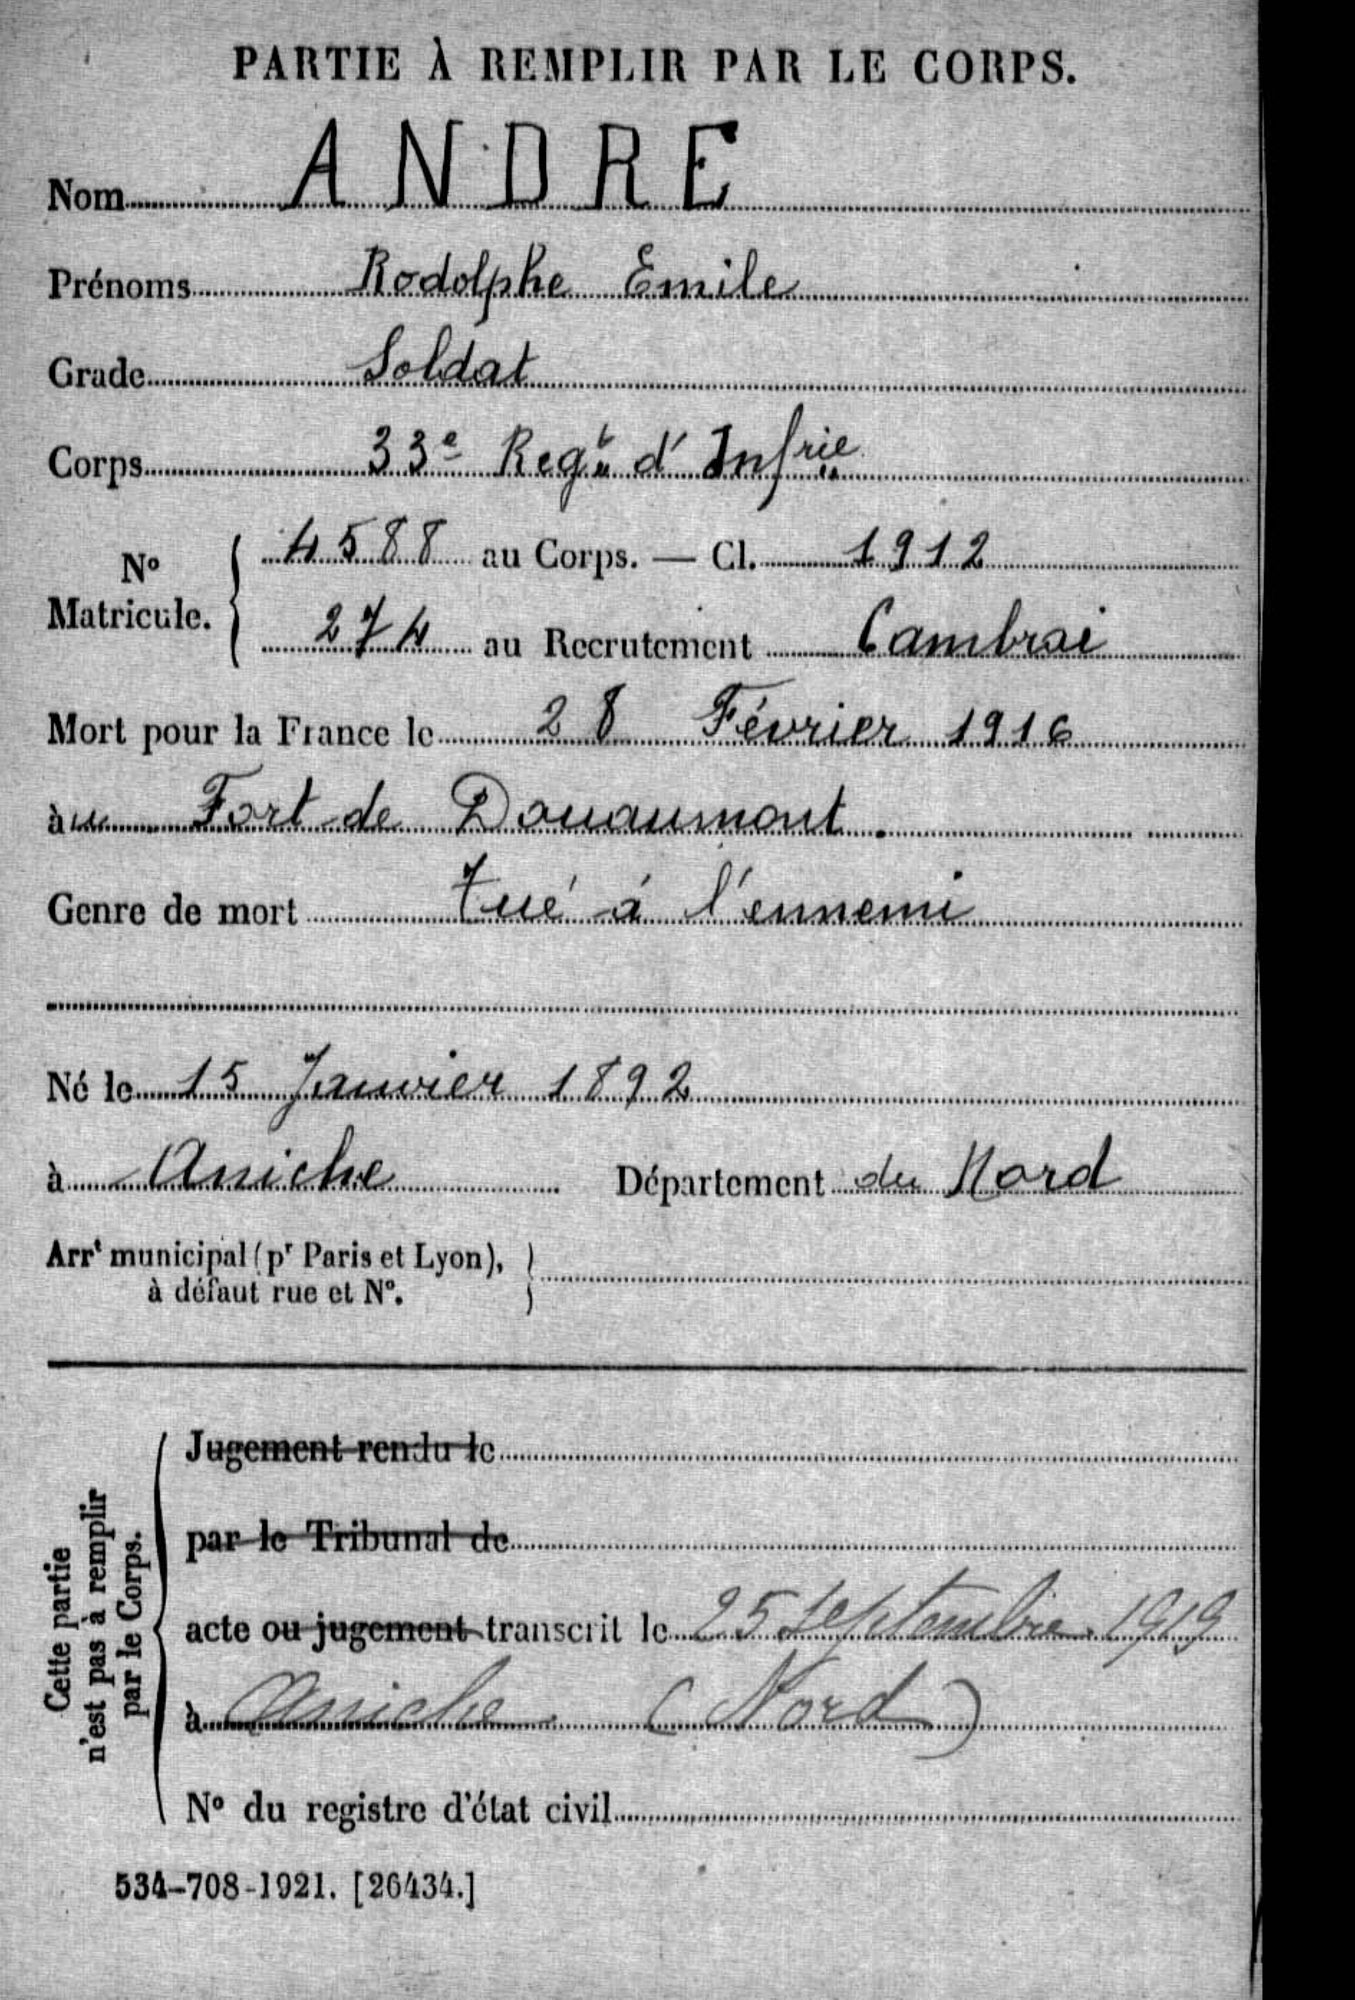 PARTIE À REMPLIR PAR LE CORPS.
Nom ANDRE
Prénoms Rodolphe Emile
Grade Soldat
Corps 33e Regt d'Infrie
No Matricule. { 4588 au Corps. — Cl. 1912
274 au Recrutement Cambrai
Mort pour la France le 28 Février 1916
àu Fort de Douaumont.
Genre de mort Tué à l'ennemi
Né le 15 Janvier 1892
à Aniche Département du Nord
Arrt municipal (pr Paris et Lyon),
à défaut rue et No.
Cette partie
n'est pas à remplir
par le Corps.
Jugement rendu le
par le Tribunal de
acte ou jugement transcrit le 25 septembre 1919
à Aniche (Nord)
No du registre d'état civil
534-708-1921. [26434.]